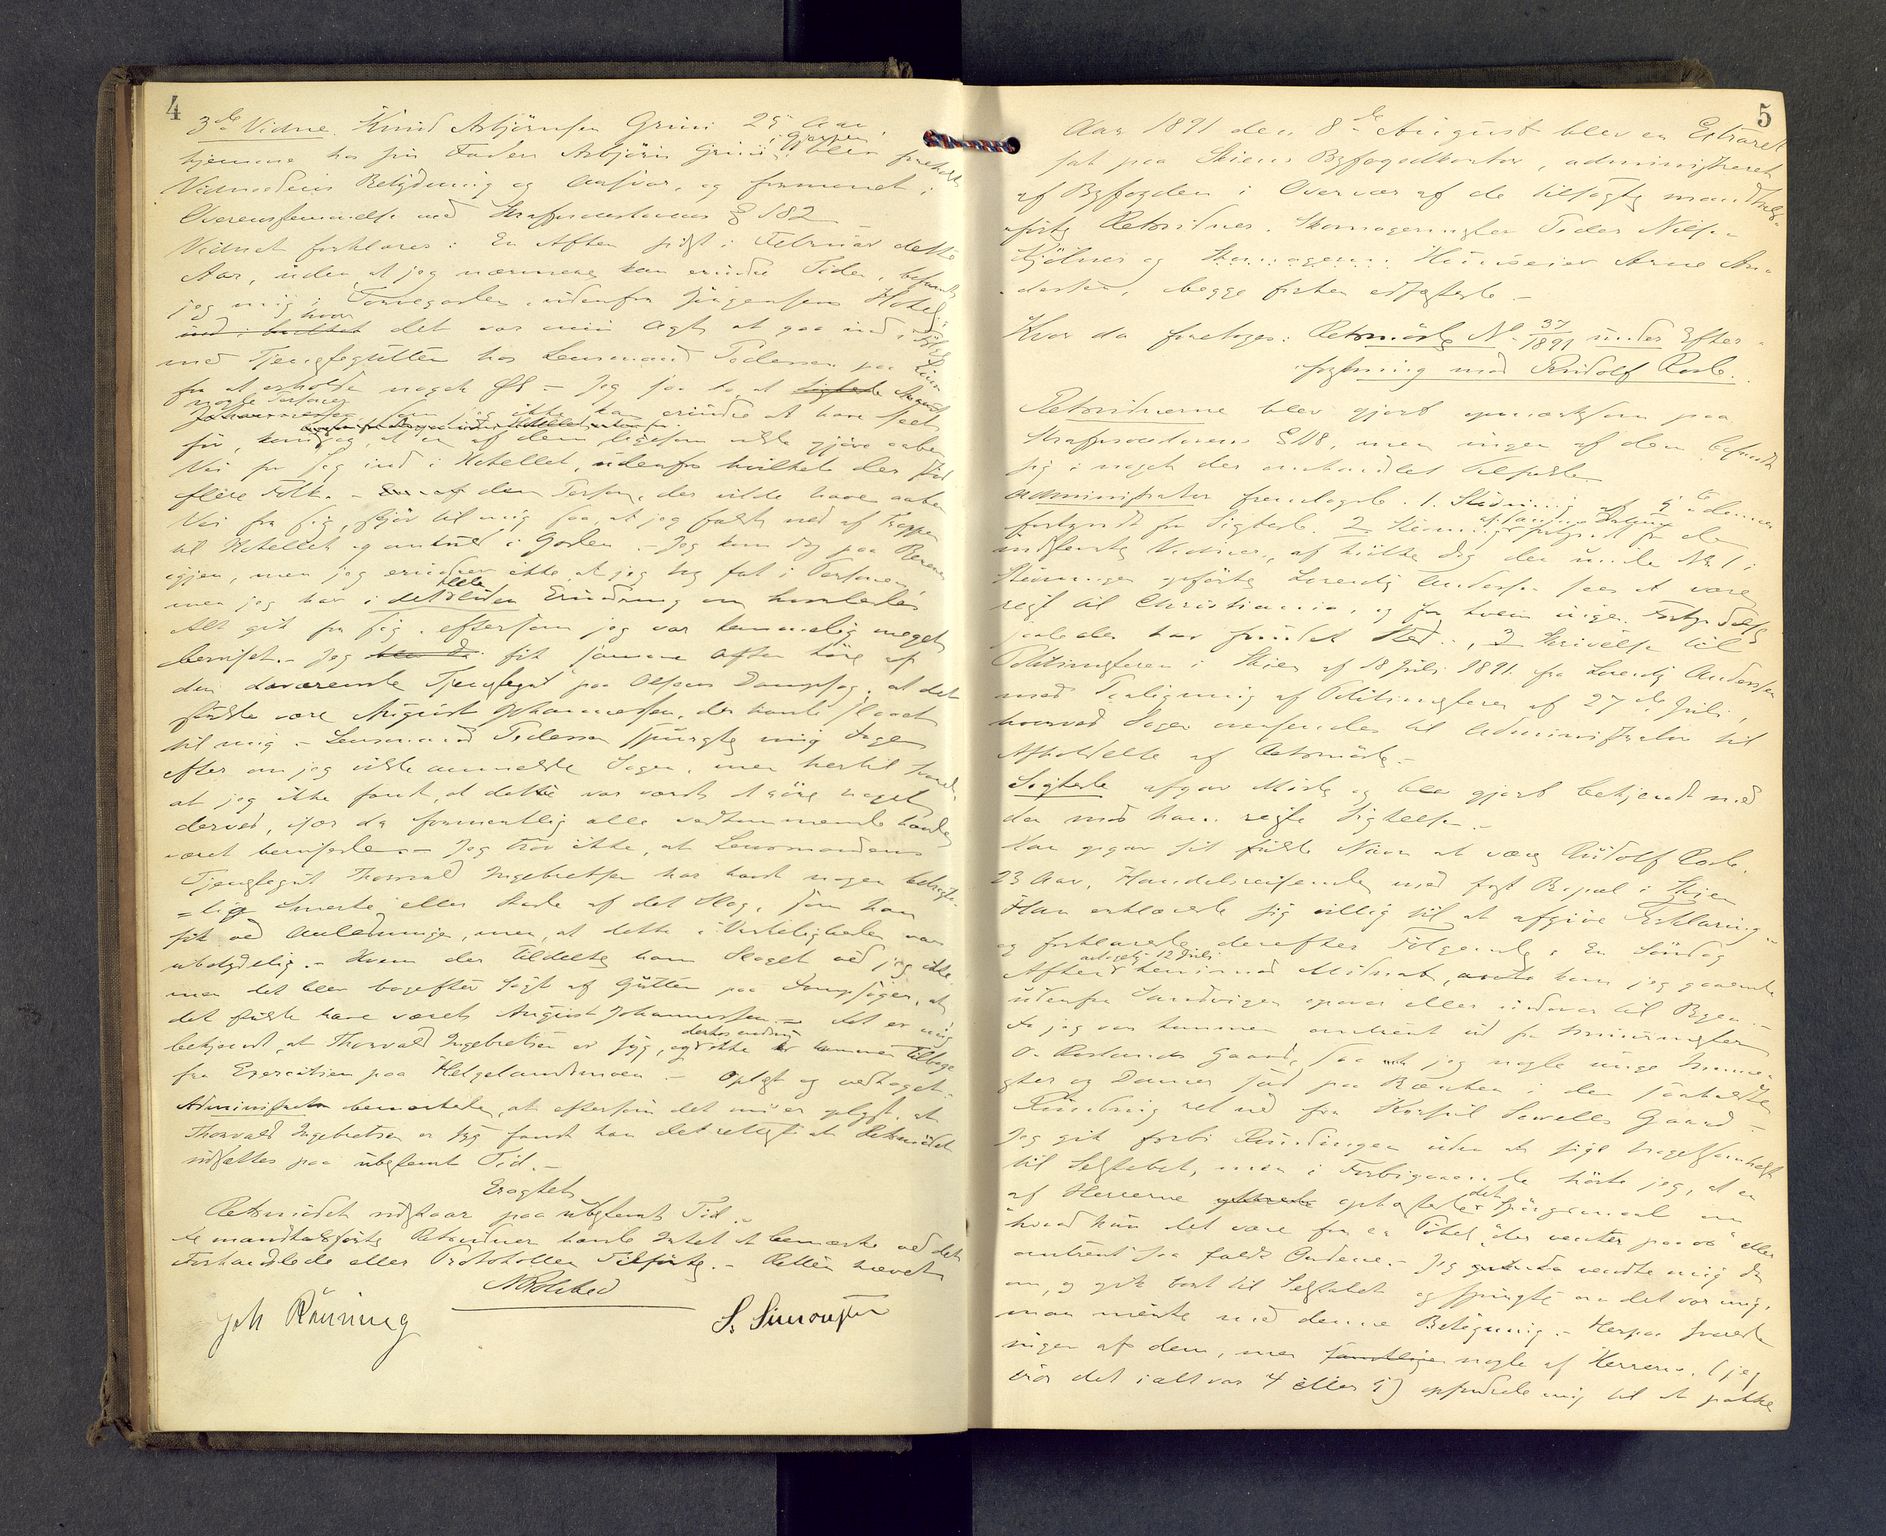 4
3de Vidne. Knud Asbjørnsen Grini 29 Aar,
hjemme hos sin Fader Asbjørn Grini i Gjerpen, blev foreholdt
Vidnedens Betydning og Ansvar, og formanet i
Overensstemmelse med Straffeprocesslovens § 182
Vidnet forklarer: En Aften sidst i Februar dette
Aar, uden at jeg nærmere kan erindre Tiden, befandt
jeg mig i Torvegaden udenfor Jørgensens Hotel,
hvor det var min Agt at gaa ind
med Tjenestegutten hos Lensmand Pedersen paa
for at erholde noget Øl – Jeg saa da at
nogle Personer som jeg ikke kan erindre at have seet
før, kom og, at en af dem ligesom vilde gjøre aaben
Vei for sig ind i Hotellet, udenfor hvilket der stod
flere Folk. – den Person, der vilde have aaben
Vei for sig, skjøv til mig saa, at jeg faldt ned af Trappen
til Hotellet og omkuld i Gaden. – Jeg kom dog paa Benene
igjen, men jeg erindrer ikke, at jeg tog fat i Personen,
men jeg har i det Hele liden Erindring om hvorledes
Alt gik for sig, eftersom jeg var temmelig meget
beruset. – Jeg fik samme Aften høre af
den daværende Tjenestegut paa Olsens Dampsag, at det
skulde være August Johannessen, der havde slaaet
til mig. – Lensmand Pedersen spurgte mig Dagen
efter om jeg vilde anmelde Sagen, men hertil svared
at jeg ikke fandt, at dette var værdt at gjøre noget
derved, især da formentlig alle vedkommende havde
været berusede. – Jeg tror ikke, at Lensmandens
Tjenestegut Thorvald Ingebretsen har havt nogen betragte-
=lig Smerte eller Skade af det Slag, som han
fik ved Anledningen, men, at dette i Virkeligheden var
ubetydelig. – Hvem der tildelte ham Slaget ved jeg ikke,
men det blev bagefter sagt af Gutten paa Dampsagen, at
det skulde have været August Johannessen. – Det er mig
bekjendt, at Thorvald Ingebretsen er syg, og derfor endnu ikke er kommen tilbage
fra Exercitien paa Helgelandsmoen. – Oplæst og vedtaget.
Administrator bemærkede, at eftersom det nu er oplyst, at
Thorvald Ingebretsen er syg fandt han det rettest at Retsmødet
udsættes paa ubestemt Tid. –
Eragtet
Retsmødet udstaar paa ubestemt Tid. –
De mandtalsførte Retsvidner havde Intet at bemærke ved det
Forhandlede eller Protokollen Tilførte. – Retten hævet
Joh Rønning
S. Simonsen
5
Aar 1891 den 8de August blev en Extraret
sat paa Skiens Byfogedkontor, administreret
af Byfogden i Overvær af de tilsagte mandtals-
førte Retsvidner, Skomagermester Peder Nilsen
Kjølner og Huuseier Arne An-
dersen, begge forhen edfæstede –
Hvor da foretoges: Retsmøde No 37/1891 under Efter-
forskning mod Rudolf
Retsvidnerne blev gjort opmærksom paa
Straffeprocesslovens § 118, men ingen af dem befandt
sig i noget der omhandlet Tilfælde
Administrator fremlagde 1. Stævning af denne
forkyndt for Sigtede. 2 Stævning af samme Datum forkyndt for de
indstevnte Vidner, af hvilke dog den under No 1 i
Stævningen opførte Lorentz Andersen sees at være
reist til Christiania, og for hvem ingen Forkyndelse
saaledes har fundet Sted, 3 Skrivelse til
Politimesteren i Skien af 18 Juli 1891 fra Lorentz Andersen
med Paategning af Politimesteren af 27de Juli,
hvorved Sagen oversendes til Administrator til
Afholdelse af Retsmøde. –
Sigtede afgav Møde og blev gjort bekjendt med
den mod ham reiste Sigtelse. –
Han opgav sit fulde Navn at være Rudolf
23 Aar, Handelsreisende med fast Bopæl i Skien
Han erklærede sig villig til at afgive Forklaring –
og forklarede derefter Følgende: En Søndag
Aften antagelig 12 Juli henimod Midnat, kom jeg gaaende
udenfra Landevigen opover eller indover til Byen. –
Da jeg var kommen omtrent ud for Murmester
O. Roslands Gaard, saa jeg nogle unge Menne-
sker og Damer sad paa Bænken i den saakaldte
Runding ret ud for Konsul Sewells Gaard –
Jeg gik forbi Rundingen uden at sige Nogetsomhelst
til Selskabet, men i Forbigaaende hørte jeg, at en
af Herrerne opkastede det Spørgsmaal om
"hvad kan det være for en Pøbel, der venter paa os" eller
omtrent saa faldt Ordene. – Jeg vendte mig da
om, og gik bort til Selskabet og spurgte om det var mig,
man mente med denne Betegning. – Herpaa svarede
ingen af dem, men nogle af Herrerne, (jeg
tror det ialt var 4 eller 5) opfordrede mig til at pakke